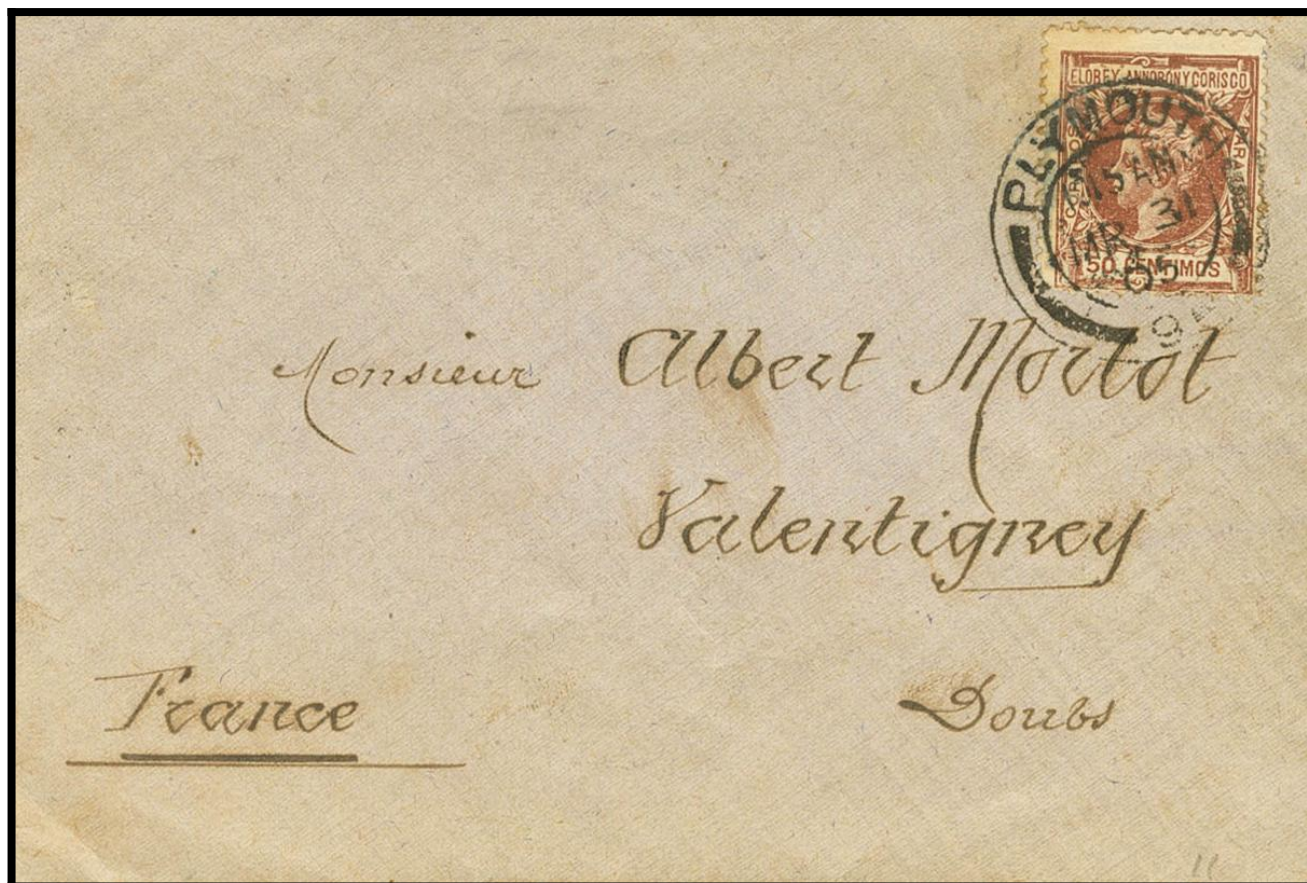 ELOBEY, ANNOBON Y CORISCO
PLYMOUTH
15 AM
MR 31
05
50 CENTIMOS
Monsieur Albert Mortot
Valentigney
Doubs
France